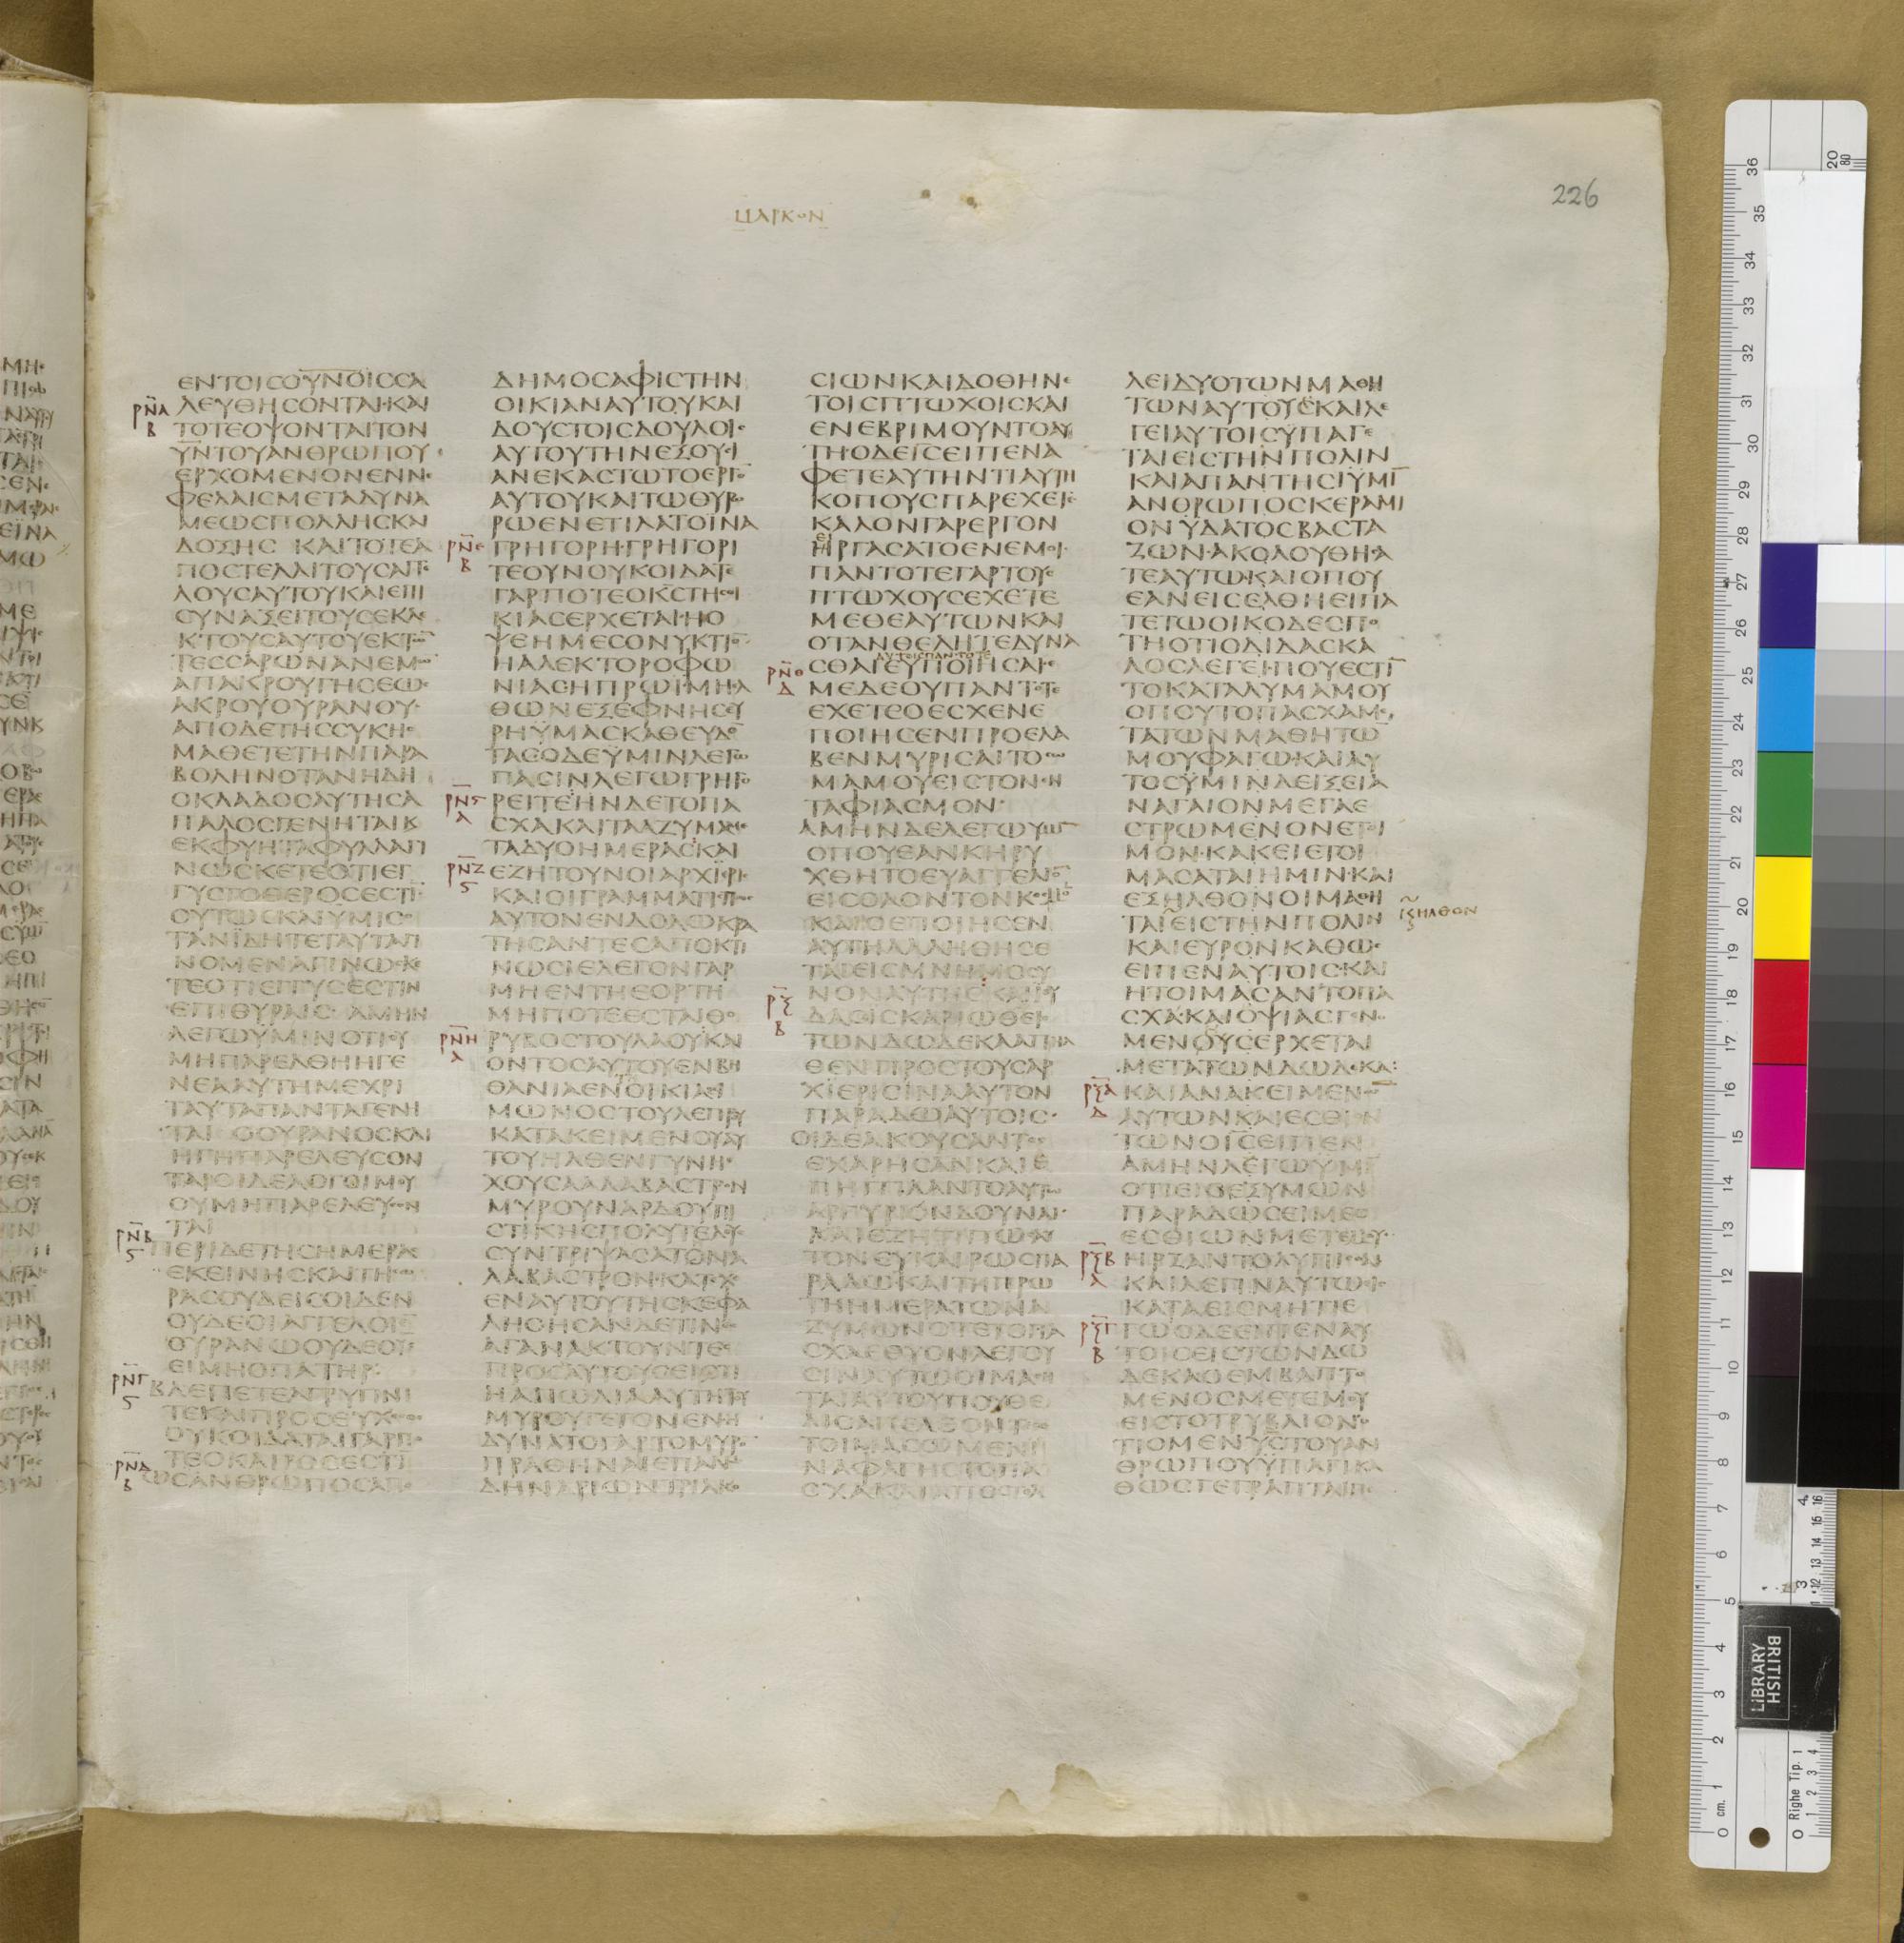 ΜΑΡΚΟΝ
226
ΕΝ ΤΟΙC ΟΥΝΟΙC CΑ
ΛΕΥΘΗCΟΝΤΑΙ ΚΑΙ
ΤΟΤΕ ΟΨΟΝΤΑΙ ΤΟΝ
ΥΝ ΤΟΥ ΑΝΘΡΩΠΟΥ
ΕΡΧΟΜΕΝΟΝ ΕΝ Ν
ΦΕΛΑΙC ΜΕΤΑ ΔΥΝΑ
ΜΕΩC ΠΟΛΛΗC ΚΑΙ
ΔΟΞΗC ΚΑΙ ΤΟΤΕ Α
ΠΟCΤΕΛΛΙ ΤΟΥC ΑΓΓΕ
ΛΟΥC ΑΥΤΟΥ ΚΑΙ ΕΠΙ
CΥΝΑΞΕΙ ΤΟΥC ΕΚΛΕ
ΚΤΟΥC ΑΥΤΟΥ ΕΚ ΤΩ
ΤΕCCΑΡΩΝ ΑΝΕΜΩ
ΑΠ ΑΚΡΟΥ ΓΗC ΕΩC
ΑΚΡΟΥ ΟΥΡΑΝΟΥ
ΑΠΟ ΔΕ ΤΗC CΥΚΗC
ΜΑΘΕΤΕ ΤΗΝ ΠΑΡΑ
ΒΟΛΗΝ ΟΤΑΝ ΗΔΗ
Ο ΚΛΑΔΟC ΑΥΤΗC Α
ΠΑΛΟC ΓΕΝΗΤΑΙ Κ
ΕΚΦΥΗ ΤΑ ΦΥΛΛΑ ΓΙ
ΝΩCΚΕΤΕ ΟΤΙ ΕΓ
ΓΥC ΤΟ ΘΕΡΟC ΕCΤΙ
ΟΥΤΩC ΚΑΙ ΥΜΙC Ο
ΤΑΝ ΙΔΗΤΕ ΤΑΥΤΑ ΓΙ
ΝΟΜΕΝΑ ΓΙΝΩCΚΕ
ΤΕ ΟΤΙ ΕΓΓΥC ΕCΤΙΝ
ΕΠΙ ΘΥΡΑΙC ΑΜΗΝ
ΛΕΓΩ ΥΜΙΝ ΟΤΙ ΟΥ
ΜΗ ΠΑΡΕΛΘΗ Η ΓΕ
ΝΕΑ ΑΥΤΗ ΜΕΧΡΙ
ΤΑΥΤΑ ΠΑΝΤΑ ΓΕΝΗ
ΤΑΙ Ο ΟΥΡΑΝΟC ΚΑΙ
Η ΓΗ ΠΑΡΕΛΕΥCΟΝ
ΤΑΙ ΟΙ ΔΕ ΛΟΓΟΙ ΜΟΥ
ΟΥ ΜΗ ΠΑΡΕΛΕΥCΟΝ
ΤΑΙ
ΠΕΡΙ ΔΕ ΤΗC ΗΜΕΡΑC
ΕΚΕΙΝΗC Κ ΑΙ ΤΗC Ω
ΡΑC ΟΥΔΕΙC ΟΙΔΕΝ
ΟΥΔΕ ΟΙ ΑΓΓΕΛΟΙ Ε
ΟΥΡΑΝΩ ΟΥΔΕ Ο ΥC
ΕΙ ΜΗ Ο ΠΑΤΗΡ
ΒΛΕΠΕΤΕ ΑΓΡΥΠΝΙ
ΤΕ ΚΑΙ ΠΡΟCΕΥΧΕCΘΕ
ΟΥΚ ΟΙΔΑΤΑΙ ΓΑΡ ΠΟ
ΤΕ Ο ΚΑΙΡΟC ΕCΤΙ
ΩC ΑΝΘΡΩΠΟC ΑΠΟ
ΡΝΑ Β
ΡΝΒ Ϛ
ΡΝΓ Ϛ
ΡΝΔ Β
ΔΗΜΟC ΑΦΙC ΤΗΝ
ΟΙΚΙΑΝ ΑΥΤΟΥ ΚΑΙ
ΔΟΥC ΤΟΙC ΔΟΥΛΟΙC
ΑΥΤΟΥ ΤΗΝ ΕΞΟΥCΙ
ΑΝ ΕΚΑCΤΩ ΤΟ ΕΡΓΟ
ΑΥΤΟΥ ΚΑΙ ΤΩ ΘΥΡΩ
ΡΩ ΕΝΕΤΙΛΑΤΟ ΙΝΑ
ΓΡΗΓΟΡΗ ΓΡΗΓΟΡΙ
ΤΕ ΟΥΝ ΟΥΚ ΟΙΔΑΤΕ
ΓΑΡ ΠΟΤΕ Ο ΚC ΤΗC ΟΙ
ΚΙΑC ΕΡΧΕΤΑΙ Η Ο
ΨΕ Η ΜΕCΟΝΥΚΤΙΟ
Η ΑΛΕΚΤΟΡΟΦΩ
ΝΙΑC Η ΠΡΩΙ ΜΗ Λ
ΘΩΝ ΕΞΕΦΝΗC ΕΥ
ΡΗ ΥΜΑC ΚΑΘΕΥΔΟ
ΤΑC Ο ΔΕ ΥΜΙΝ ΛΕΓΩ
ΠΑCΙΝ ΛΕΓΩ ΓΡΗΓΟ
ΡΕΙΤΕ ΗΝ ΔΕ ΤΟ ΠΑ
CΧΑ ΚΑΙ ΤΑ ΑΖΥΜΑ ΜΕ
ΤΑ ΔΥΟ ΗΜΕΡΑC ΚΑΙ
ΕΖΗΤΟΥΝ ΟΙ ΑΡΧΙΕΡΙC
ΚΑΙ ΟΙ ΓΡΑΜΜΑΤΙC ΠΩC
ΑΥΤΟΝ ΕΝ ΔΟΛΩ ΚΡΑ
ΤΗCΑΝΤΕC ΑΠΟΚΤΙ
ΝΩCΙ ΕΛΕΓΟΝ ΓΑΡ
ΜΗ ΕΝ ΤΗ ΕΟΡΤΗ
ΜΗΠΟΤΕ ΕCΤΑΙ ΘΟ
ΡΥΒΟC ΤΟΥ ΛΑΟΥ ΚΑΙ
ΟΝΤΟC ΑΥΤΟΥ ΕΝ ΒΗ
ΘΑΝΙΑ ΕΝ ΟΙΚΙΑ CΙ
ΜΩΝΟC ΤΟΥ ΛΕΠΡΟΥ
ΚΑΤΑΚΕΙΜΕΝΟΥ ΑΥ
ΤΟΥ ΗΛΘΕΝ ΓΥΝΗ Ε
ΧΟΥCΑ ΑΛΑΒΑCΤΡΟΝ
ΜΥΡΟΥ ΝΑΡΔΟΥ ΠΙ
CΤΙΚΗC ΠΟΛΥΤΕΛΟΥC
CΥΝΤΡΙΨΑCΑ ΤΟΝ Α
ΛΑΒΑCΤΡΟΝ ΚΑΤΕΧΕ
ΕΝ ΑΥΤΟΥ ΤΗC ΚΕΦΑ
ΛΗC ΗCΑΝ ΔΕ ΤΙΝΕC
ΑΓΑΝΑΚΤΟΥΝΤΕC
ΠΡΟC ΑΥΤΟΥC ΕΙC ΤΙ
Η ΑΠΩΛΙΑ ΑΥΤΗ ΤΟΥ
ΜΥΡΟΥ ΓΕΓΟΝΕΝ Η
ΔΥΝΑΤΟ ΓΑΡ ΤΟ ΜΥΡΟ
ΠΡΑΘΗΝΑΙ ΕΠΑΝΩ
ΔΗΝΑΡΙΩΝ ΤΡΙΑΚΟ
ΡΝΕ Β
ΡΝϚ Α
ΡΝΖ Ϛ
ΡΝΗ Α
CΙΩΝ ΚΑΙ ΔΟΘΗΝΑΙ
ΤΟΙC ΠΤΩΧΟΙC ΚΑΙ
ΕΝΕΒΡΙΜΟΥΝΤΟ ΑΥ
ΤΗ Ο ΔΕ ΙC ΕΙΠΕΝ Α
ΦΕΤΕ ΑΥΤΗΝ ΤΙ ΑΥΤΗ
ΚΟΠΟΥC ΠΑΡΕΧΕΤΕ
ΚΑΛΟΝ ΓΑΡ ΕΡΓΟΝ
ΗΡΓΑCΑΤΟ ΕΝ ΕΜΟΙ
ΠΑΝΤΟΤΕ ΓΑΡ ΤΟΥC
ΠΤΩΧΟΥC ΕΧΕΤΕ
ΜΕΘ ΕΑΥΤΩΝ ΚΑΙ
ΟΤΑΝ ΘΕΛΗΤΕ ΔΥΝΑ
CΘΑΙ ΑΥΤΟΙC ΠΑΝΤΟΤΕ ΕΥ ΠΟΙΗCΑΙ Ε
ΜΕ ΔΕ ΟΥ ΠΑΝΤΟΤΕ
ΕΧΕΤΕ Ο ΕCΧΕΝ Ε
ΠΟΙΗCΕΝ ΠΡΟΕΛΑ
ΒΕΝ ΜΥΡΙCΑΙ ΤΟ CΩ
ΜΑ ΜΟΥ ΕΙC ΤΟΝ ΕΝ
ΤΑΦΙΑCΜΟΝ
ΑΜΗΝ ΔΕ ΛΕΓΩ ΥΜΙ
ΟΠΟΥ ΕΑΝ ΚΗΡΥ
ΧΘΗ ΤΟ ΕΥΑΓΓΕΛΙΟ
ΕΙC ΟΛΟΝ ΤΟΝ ΚΟCΜΟ
ΚΑΙ Ο ΕΠΟΙΗCΕΝ
ΑΥΤΗ ΛΑΛΗΘΗCΕ
ΤΑΙ ΕΙC ΜΝΗΜΟCΥ
ΝΟΝ ΑΥΤΗC ΚΑΙ ΙΟΥ
ΔΑC ΙCΚΑΡΙΩΘ ΕΙC
ΤΩΝ ΔΩΔΕΚΑ ΑΠΗΛ
ΘΕΝ ΠΡΟC ΤΟΥC ΑΡ
ΧΙΕΡΙC ΙΝΑ ΑΥΤΟΝ
ΠΑΡΑΔΩ ΑΥΤΟΙC
ΟΙ ΔΕ ΑΚΟΥCΑΝΤΕC
ΕΧΑΡΗCΑΝ ΚΑΙ Ε
ΠΗΓΓΙΛΑΝΤΟ ΑΥΤΩ
ΑΡΓΥΡΙΟΝ ΔΟΥΝΑΙ
ΚΑΙ ΕΖΗΤΙ ΠΩC ΑΥ
ΤΟΝ ΕΥΚΑΙΡΩC ΠΑ
ΡΑΔΩ ΚΑΙ ΤΗ ΠΡΩ
ΤΗ ΗΜΕΡΑ ΤΩΝ Α
ΖΥΜΩΝ ΟΤΕ ΤΟ ΠΑ
CΧΑ ΕΘΥΟΝ ΛΕΓΟΥ
CΙΝ ΑΥΤΩ ΟΙ ΜΑΘΗ
ΤΑΙ ΑΥΤΟΥ ΠΟΥ ΘΕ
ΛΙC ΑΠΕΛΘΟΝΤΕC
ΤΟΙΜΑCΩΜΕΝ Ι
ΝΑ ΦΑΓΗC ΤΟ ΠΑ
CΧΑ ΚΑΙ ΑΠΟCΤΕΛ
ΡΝΘ Δ
ΡΞ Β
ΛΕΙ ΔΥΟ ΤΩΝ ΜΑΘΗ
ΤΩΝ ΑΥΤΟΥ ΚΑΙ ΛΕ
ΓΕΙ ΑΥΤΟΙC ΥΠΑΓΕ
ΤΑΙ ΕΙC ΤΗΝ ΠΟΛΙΝ
ΚΑΙ ΑΠΑΝΤΗCΙ ΥΜΙ
ΑΝΘΡΩΠΟC ΚΕΡΑΜΙ
ΟΝ ΥΔΑΤΟC ΒΑCΤΑ
ΖΩΝ ΑΚΟΛΟΥΘΗCΑ
ΤΕ ΑΥΤΩ ΚΑΙ ΟΠΟΥ
ΕΑΝ ΕΙCΕΛΘΗ ΕΙΠΑ
ΤΕ ΤΩ ΟΙΚΟΔΕCΠΟ
ΤΗ ΟΤΙ Ο ΔΙΔΑCΚΑ
ΛΟC ΛΕΓΕΙ ΠΟΥ ΕCΤΙ
ΤΟ ΚΑΤΑΛΥΜΑ ΜΟΥ
ΟΠΟΥ ΤΟ ΠΑCΧΑ ΜΕ
ΤΑ ΤΩΝ ΜΑΘΗΤΩ
ΜΟΥ ΦΑΓΩ ΚΑΙ ΑΥ
ΤΟC ΥΜΙΝ ΔΕΙΞΕΙ Α
ΝΑΓΑΙΟΝ ΜΕΓΑ Ε
CΤΡΩΜΕΝΟΝ ΕΤΟΙ
ΜΟΝ ΚΑΚΕΙ ΕΤΟΙ
ΜΑCΑΤΑΙ ΗΜΙΝ ΚΑΙ
ΕΞΗΛΘΟΝ ΟΙ ΜΑΘΗ
ΤΑΙ ΕΙC ΤΗΝ ΠΟΛΙΝ
ΚΑΙ ΕΥΡΟΝ ΚΑΘΩC
ΕΙΠΕΝ ΑΥΤΟΙC ΚΑΙ
ΗΤΟΙΜΑCΑΝ ΤΟ ΠΑ
CΧΑ ΚΑΙ ΟΨΙΑC ΓΕΝΟ
ΜΕΝΟΥC ΕΡΧΕΤΑΙ
ΜΕΤΑ ΤΩΝ ΔΩΔΕΚΑ
ΚΑΙ ΑΝΑΚΕΙΜΕΝΩ
ΑΥΤΩΝ ΚΑΙ ΕCΘΙΟΝ
ΤΩΝ Ο ΙC ΕΙΠΕΝ
ΑΜΗΝ ΛΕΓΩ ΥΜΙ
ΟΤΙ ΕΙC ΕΞ ΥΜΩΝ
ΠΑΡΑΔΩCΕΙ ΜΕ Ο
ΕCΘΙΩΝ ΜΕΤ ΕΜΟΥ
ΗΡΞΑΝΤΟ ΛΥΠΙCΘΑΙ
ΚΑΙ ΛΕΓΙΝ ΑΥΤΩ ΕΙC
ΚΑΤΑ ΕΙC ΜΗΤΙ Ε
ΓΩ Ο ΔΕ ΕΙΠΕΝ ΑΥ
ΤΟΙC ΕΙC ΤΩΝ ΔΩ
ΔΕΚΑ Ο ΕΜΒΑΠΤΟ
ΜΕΝΟC ΜΕΤ ΕΜΟΥ
ΕΙC ΤΟ ΤΡΥΒΛΙΟΝ Ο
ΤΙ Ο ΜΕΝ ΥC ΤΟΥ ΑΝ
ΘΡΩΠΟΥ ΥΠΑΓΙ ΚΑ
ΘΩC ΓΕΓΡΑΠΤΑΙ ΠΕ
ΡΞΑ Δ
ΡΞΒ Α
ΡΞΓ Β
ΙCΗΛΘΟΝ
BRITISH
LIBRARY